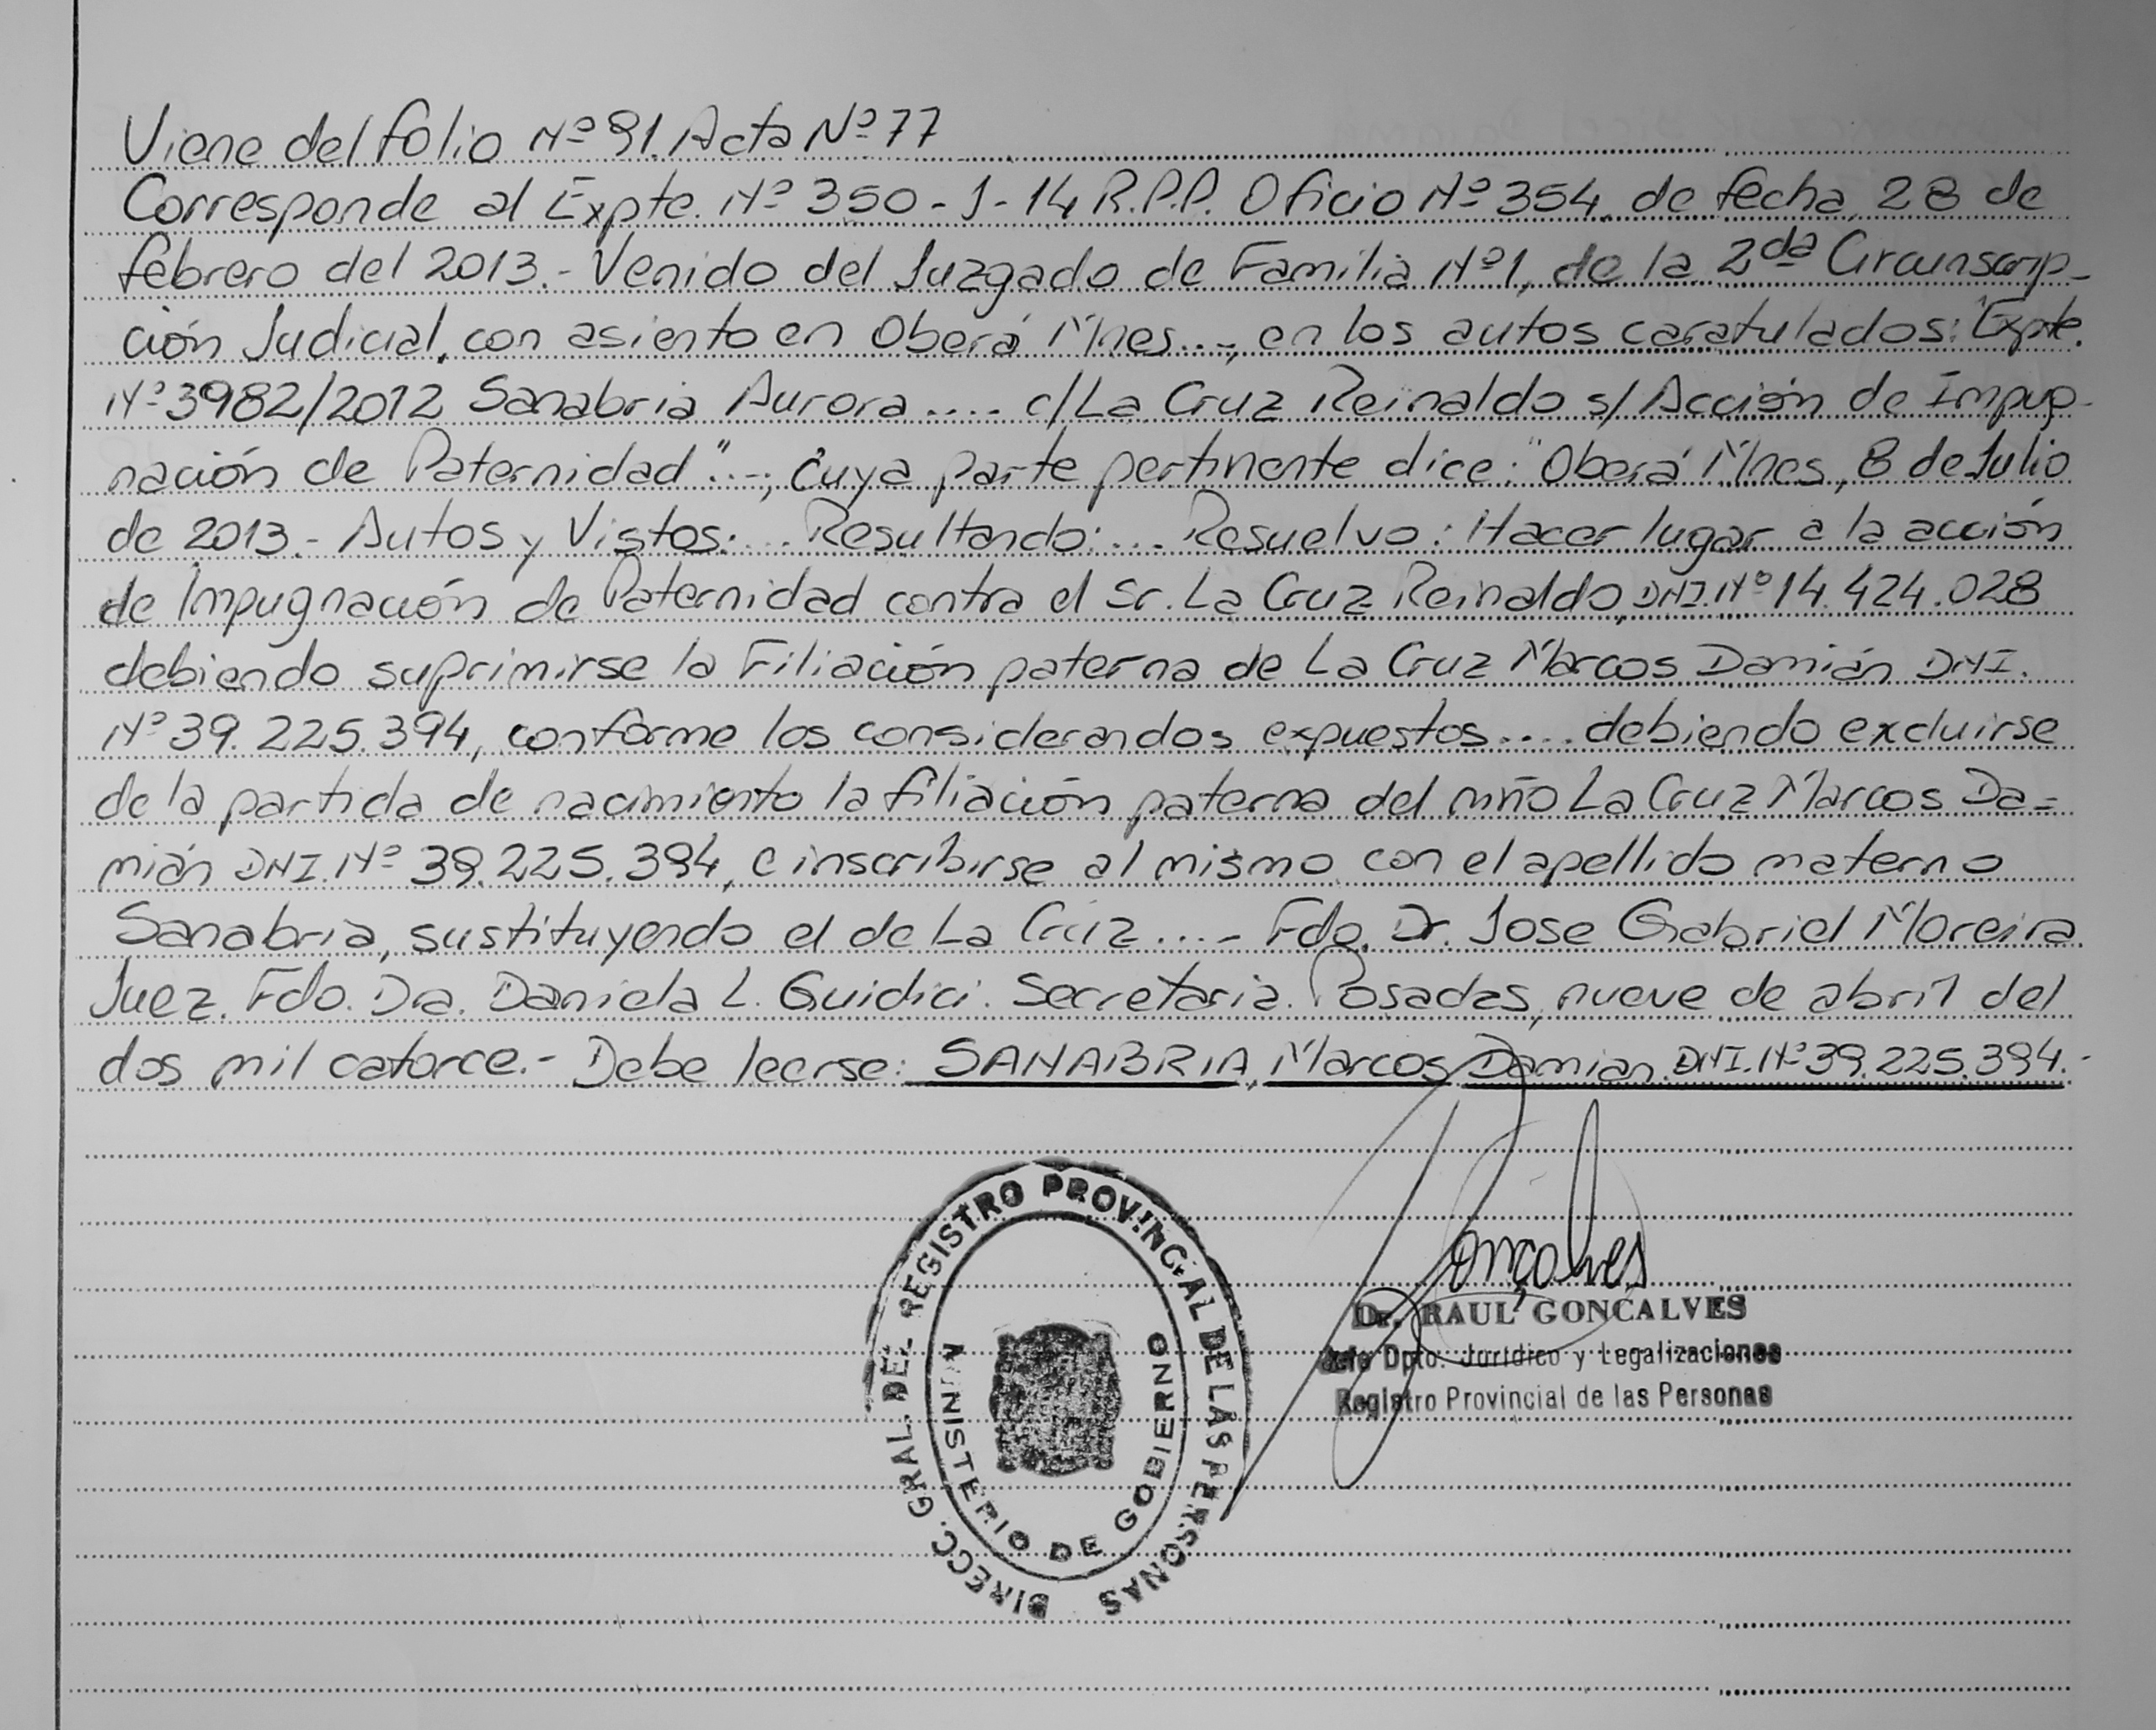 Viene del folio Nº 91. Acta Nº 77
Corresponde al Expte. Nº 350 - J - 14 R.P.P. Oficio Nº 354, de fecha, 28 de
febrero del 2013.- Venido del Juzgado de Familia Nº 1, de la 2da Circunscrip-
ción Judicial, con asiento en Oberá Mnes...-, en los autos caratulados: "Expte.
Nº 3982/2012 Sanabria Aurora .... c/La Cruz Reinaldo s/ Acción de Impug-
nación de Paternidad"..-, Cuya parte pertinente dice: "Oberá Mnes, 8 de Julio
de 2013.- Autos y Vistos:... Resultando:... Resuelvo: Hacer lugar a la acción
de Impugnación de Paternidad contra el Sr. La Cruz Reinaldo, DNI. Nº 14.424.028
debiendo suprimirse la Filiación paterna de La Cruz Marcos Damián DNI.
Nº 39.225.394, conforme los considerandos expuestos.... debiendo excluirse
de la partida de nacimiento la filiación paterna del niño La Cruz Marcos Da=
mián DNI. Nº 39.225.394, e inscribirse al mismo con el apellido materno
Sanabria, sustituyendo el de La Cruz ...- Fdo. Dr. Jose Gabriel Moreira.
Juez. Fdo. Dra. Daniela L. Guidici. Secretaria. Posadas, nueve de abril del
dos mil catorce.- Debe leerse: SANABRIA, Marcos Damian. DNI. Nº 39.225.394.-
DIRECC. GRAL. DEL REGISTRO PROVINCIAL DE LAS PERSONAS
MINISTERIO DE GOBIERNO
Gonçalves
Dr. RAUL GONCALVES
Jefe Dpto. Jurídico y Legalizaciones
Registro Provincial de las Personas